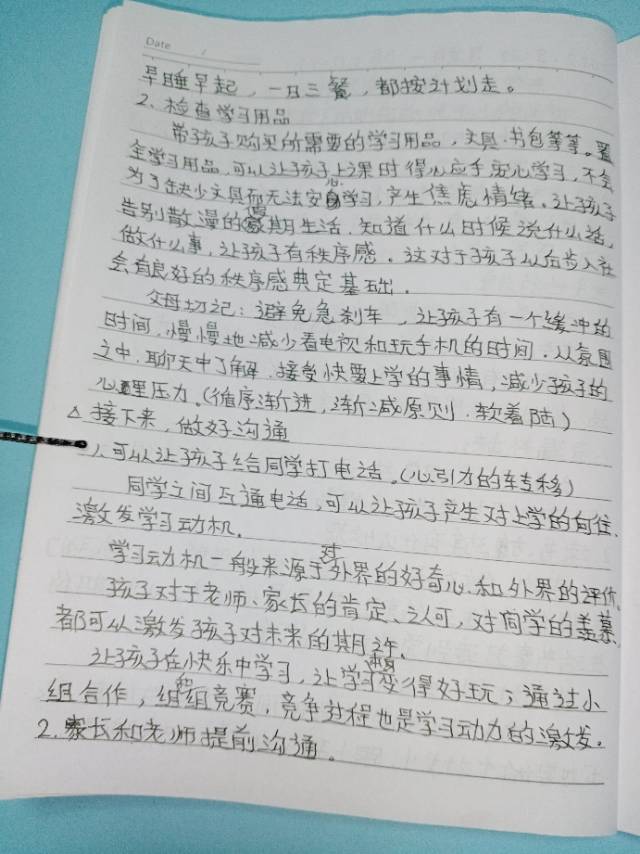 Date
早睡早起，一日三餐，都按计划走。
2、检查学习用品
带孩子购买所需要的学习用品，文具、书包等等。置
全学习用品，可以让孩子上课时得心应手安心学习，不会
为了缺少文具而无法安心学习，产生焦虑情绪。让孩子
告别散漫的假期生活，知道什么时候说什么话，
做什么事，让孩子有秩序感。这对于孩子以后步入社
会有良好的秩序感典定基础。
父母切记：避免急刹车，让孩子有一个缓冲的
时间，慢慢地减少看电视和玩手机的时间。从氛围
之中，聊天中了解，接受快要上学的事情，减少孩子的
心理压力。（循序渐进，渐减原则，软着陆）
△接下来，做好沟通
1、可以让孩子给同学打电话。（心引力的转移）
同学之间互通电话，可以让孩子产生对上学的向往，
激发学习动机。
学习动机一般来源于对外界的好奇心和外界的评价，
孩子对于老师、家长的肯定、认可，对同学的羡慕
都可以激发孩子对未来的期许。
让孩子在快乐中学习，让学习本身变得好玩；通过小
组合作，组和组竞赛，竞争过程也是学习动力的激发。
2、家长和老师提前沟通。